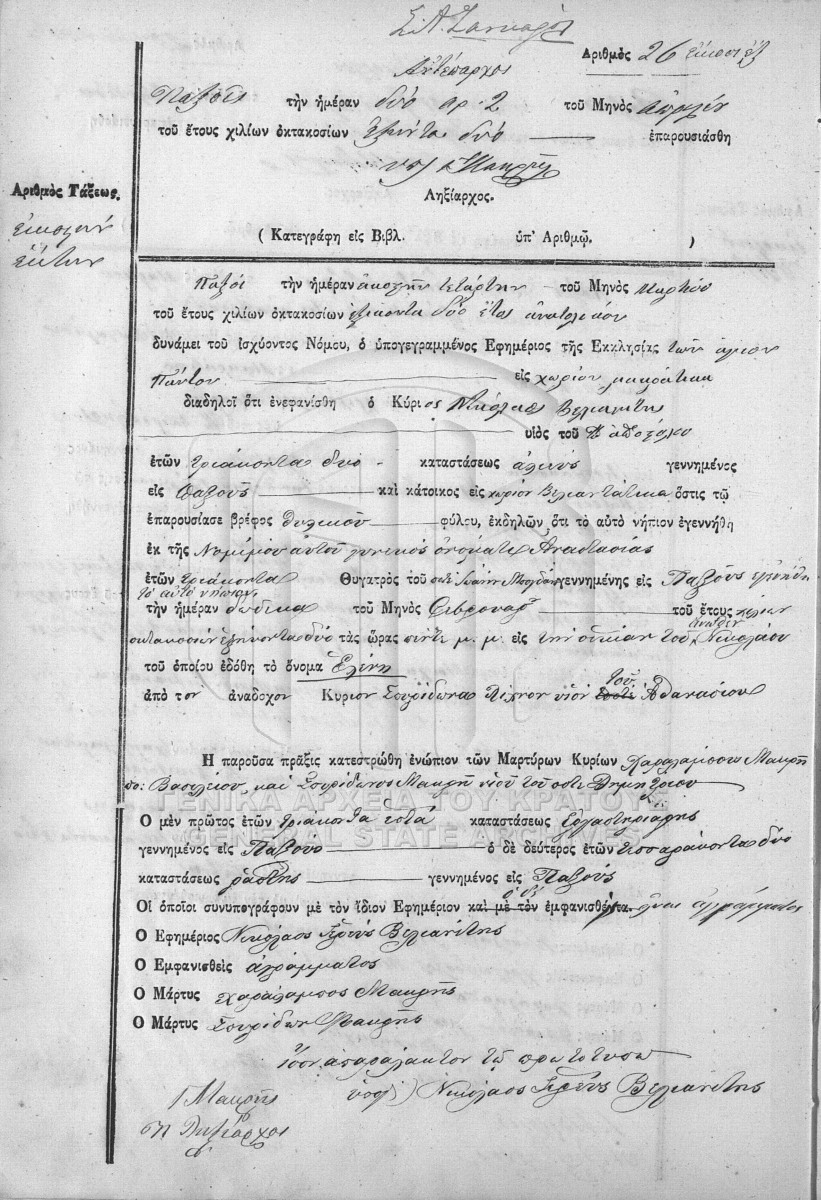 Ἀριθμὸς 26 εἴκοσι ἕξ
Ἀντέπαρχος
Παξοῖς τὴν ἡμέραν δύο αρ. 2 τοῦ Μηνὸς
τοῦ ἔτους χιλίων ὀκτακοσίων ἑξῆντα δύο ἐπαρουσιάσθη
Μακρῆς
Ληξίαρχος.
Ἀριθμὸς Τάξεως.
εἰκοστὸν
ἕκτον
( Κατεγράφη εἰς Βιβλ. ὑπ' Ἀριθμῷ. )
Παξοὶ τὴν ἡμέραν εἰκοστὴν τετάρτην τοῦ Μηνὸς Μαρτίου
τοῦ ἔτους χιλίων ὀκτακοσίων ἑξήκοντα δύο ἔτος ἀνατολικὸν
δυνάμει τοῦ ἰσχύοντος Νόμου, ὁ ὑπογεγραμμένος Ἐφημέριος τῆς Ἐκκλησίας τῶν ἁγίων
Πάντον εἰς χωρίον μακράτικα
διαδηλοῖ ὅτι ἐνεφανίσθη ὁ Κύριος Νικόλαος Βελιανίτης
υἱὸς τοῦ
ἐτῶν τριάκοντα δυο καταστάσεως γεννημένος
εἰς Παξοὺς καὶ κάτοικος εἰς χωρίον Βελιαντάτικα ὅστις τῷ
ἐπαρουσίασε βρέφος θυλικοῦ φύλου, ἐκδηλῶν, ὅτι τὸ αὐτὸ νήπιον ἐγεννήθη
ἐκ τῆς Νομίμου αὐτοῦ γυνεκὸς ὀνόματι Ἀναστασίας
ἐτῶν τριάκοντα Θυγατρὸς τοῦ ποτὲ Ἰωάννη γεννημένης εἰς Παξοὺς
τὸ αὐτὸ νήπιον
τὴν ἡμέραν δώδεκα τοῦ Μηνὸς Φεβρουαρ τοῦ ἔτους χιλίων
ἄνωθεν
οκτακοσιων ἑξῆκοντα δύο τὰς ὥρας πέντε μ. μ. εἰς τὴν οἰκίαν τοῦ Νικολάου
τοῦ ὁποίου ἐδόθη τὸ ὄνομα Ἑλένη
τοῦ
ἀπὸ τον ἀνάδοχον Κυριον Σπυρίδωνα υἱὸν ποτὲ Ἀθανασίου
Ἡ παροῦσα πρᾶξις κατεστρώθη ἐνώπιον τῶν Μαρτύρων Κυρίων Χαραλάμπου Μακρῆ
πο: Βασιλείου, καὶ Σπυρίδωνος Μακρῆ υἱοῦ τοῦ ποτὲ Δημητρίου
ΓΕΝΙΚΑ ΑΡΧΕΙΑ ΤΟΥ ΚΡΑΤΟΥΣ
Ὁ μὲν πρῶτος ἐτῶν τριακοντα ἑπτὰ καταστάσεως Εργαστηριάρης
GENERAL STATE ARCHIVES
γεννημένος εἰς Παξοὺς ὁ δὲ δεύτερος ἐτῶν τεσσαράκοντα δύο
καταστάσεως ράπτης γεννημένος εἰς Παξοὺς
ὁ δὲ
Οἱ ὁποῖοι συνυπογράφουν μὲ τὸν ἴδιον Ἐφημέριον καὶ μὲ τὸν ἐμφανισθέντα εἶναι ἀγράμματος
Ὁ Ἐφημέριος Νικόλαος Ἱερεὺς Βελιανίτης
Ὁ Ἐμφανισθεὶς ἀγράμματος
Ὁ Μάρτυς Χαράλαμπος Μακρῆς
Ὁ Μάρτυς Σπυρίδων Μακρῆς
Ἴσον ἀπαράλακτον τῷ πρωτοτύπῳ
Γ Μακρῆς ὑπογ) Νικόλαος Ἱερεὺς Βελιανίτης
Ληξίαρχος